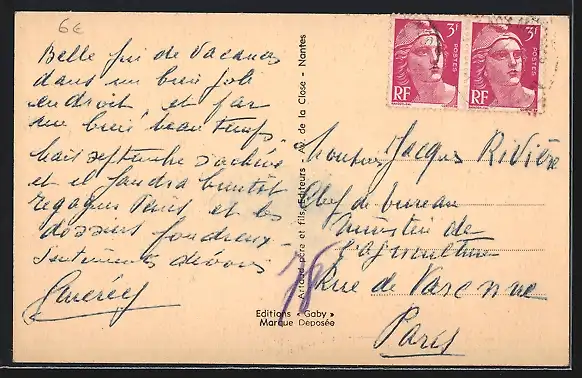 6€
Belle fin de Vacances
dans un bien joli
endroit et par
un bien beau temps
Mais septembre s'achève
et il faudra bientôt
regagner Paris et les
dossiers
Sentiments dévoués
Artaud père et fils, Editeurs - Av. de la Close - Nantes
Editions « Gaby »
Marque Déposée
3F
POSTES
RF
3F
POSTES
RF
Monsieur Jacques Rivière
Chef de bureau
Ministère de
l'agriculture
Rue de Varenne
Paris